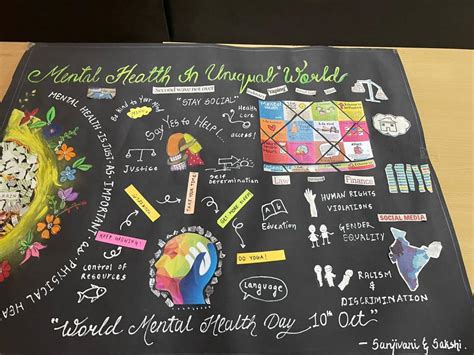 Mental Health In Unequal World
Second wave not over
"STAY SOCIAL"
Be kind to Your Mind
Say Yes to HELP!...
Health care access!
MENTAL HEALTH IS JUST AS IMPORTANT as PHYSICAL HEA
Justice
self determination
TAKE YOUR TIME
KEEP SMILING!!
GET MORE SLEEP!
DO YOGA!
control of Resources
Education
Language
Law
Finance
HUMAN RIGHTS VIOLATIONS
SOCIAL MEDIA
GENDER EQUALITY
RACISM & DISCRIMINATION
"World Mental Health Day 10th Oct"
- Sanjivani & Sakshi.